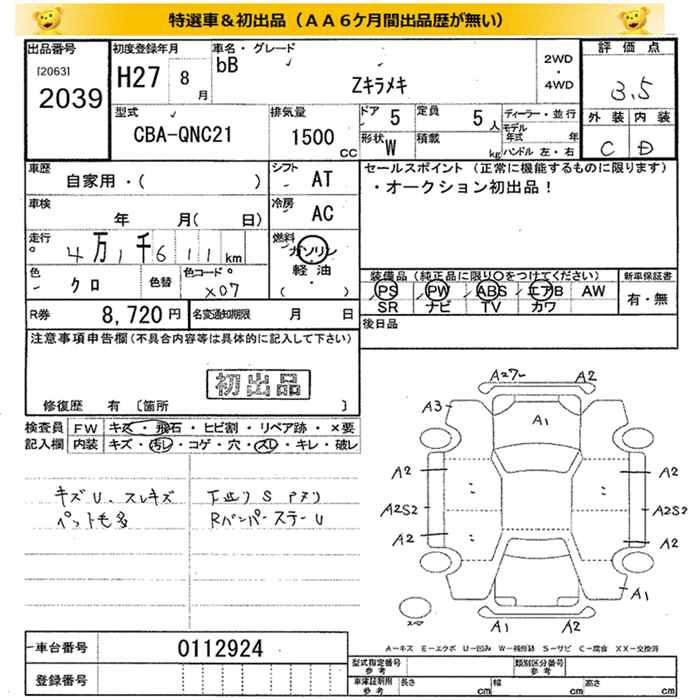 特選車＆初出品（ＡＡ６ケ月間出品歴が無い）
出品番号 初度登録年月 車名・グレード 評価点
[2063] bB 2WD
2039 H27 8月 Zキラメキ ・
4WD 3.5
型式 排気量 ドア 5 定員 5人 ディーラー・並行 外装 内装
CBA-QNC21 1500 CC 形状 W 積載 kg モデル年式 年 C D
ハンドル 左・右
車歴 シフト AT セールスポイント（正常に機能するものに限ります）
自家用・( ) ・オークション初出品！
車検 年 月( 日) 冷房 AC
走行 4万1千611km 燃料 ガソリン
軽油
( ・ )
色 クロ 色替 色コード X07 装備品（純正品に限り○をつけてください） 新車保証書
PS PW ABS エアB AW 有・無
SR ナビ TV カワ
R券 8,720円 名変通知期限 月 日 後日品
注意事項申告欄(不具合内容等は具体的に記入して下さい)
初出品
修復歴 有 〔箇所 〕
検査員 FW キズ・飛石・ヒビ割・リペア跡・×要
記入欄 内装 キズ・汚レ・コゲ・穴・スレ・キレ・破レ
キズU、スレキズ
ペット毛多
RバンパーステーU
A2 A3 A1
A2 A2
A2S2 A2S2
A2 A2
A1
A1 A2
A－キズ E－エクボ U－凹み W－補修跡 S－サビ C－腐食 XX－交換済
車台番号 0112924 型式指定番号 参考 類別区分番号 参考
登録番号 車庫証明用 参考 長さ cm 幅 cm 高さ cm